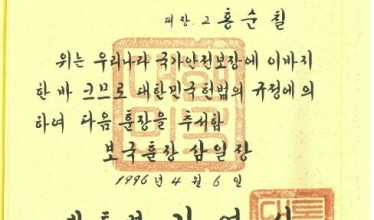 대장 고 홍순칠
위는 우리나라 국가안전보장에 이바지
한 바 크므로 대한민국헌법의 규정에 의
하여 다음 훈장을 추서함
보국훈장 삼일장
1996년 4월 6일
대통령 김영삼